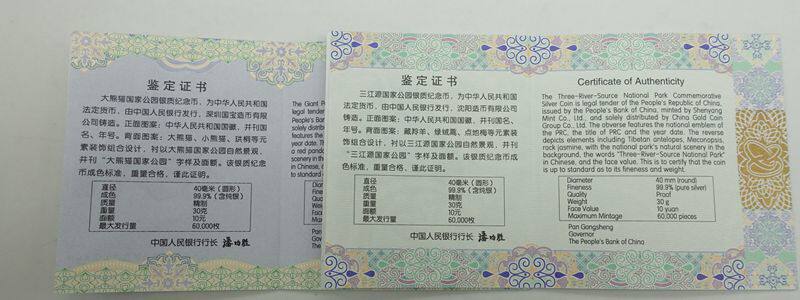 鉴定证书
大熊猫国家公园银质纪念币，为中华人民共和国
法定货币，由中国人民银行发行，深圳国宝造币有限公
司铸造。正面图案：中华人民共和国国徽，并刊国
名、年号。背面图案：大熊猫、小熊猫、珙桐等元
素装饰组合设计，衬以大熊猫国家公园自然景观，
并刊“大熊猫国家公园”字样及面额。该银质纪念
币成色标准，重量合格，谨此证明。
直径 40毫米（圆形）
成色 99.9%（含纯银）
质量 精制
重量 30克
面额 10元
最大发行量 60,000枚
中国人民银行行长 潘功胜
The Giant P
legal tender
People's Ban
solely distrib
features the
year date. T
a red panda
scenery in th
in Chinese, a
to standard
Diam
Finen
Quali
Weig
Face
Maxi
Pan
Gov
The
鉴定证书
三江源国家公园银质纪念币，为中华人民共和国
法定货币，由中国人民银行发行，沈阳造币有限公司
铸造。正面图案：中华人民共和国国徽，并刊国
名、年号。背面图案：藏羚羊、绿绒蒿、点地梅等元素装
饰组合设计，衬以三江源国家公园自然景观，并刊
“三江源国家公园”字样及面额。该银质纪念币成
色标准，重量合格，谨此证明。
直径 40毫米（圆形）
成色 99.9%（含纯银）
质量 精制
重量 30克
面额 10元
最大发行量 60,000枚
中国人民银行行长 潘功胜
Certificate of Authenticity
The Three-River-Source National Park Commemorative
Silver Coin is legal tender of the People's Republic of China,
issued by the People's Bank of China, minted by Shenyang
Mint Co., Ltd., and solely distributed by China Gold Coin
Group Co., Ltd. The obverse features the national emblem of
the PRC, the title of PRC and the year date. The reverse
depicts elements including Tibetan antelopes, Meconopsis,
rock jasmine, with the national park's natural scenery in the
background, the words "Three-River-Source National Park"
in Chinese, and the face value. This is to certify that the coin
is up to standard as to its fineness and weight.
Diameter 40 mm (round)
Fineness 99.9% (pure silver)
Quality Proof
Weight 30 g
Face Value 10 yuan
Maximum Mintage 60,000 pieces
Pan Gongsheng
Governor
The People's Bank of China